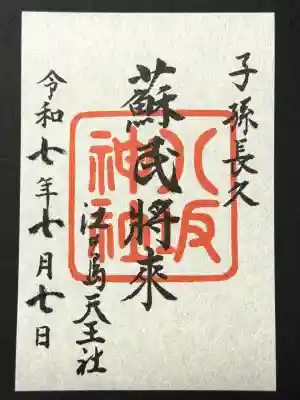 子孫長久
蘇民將来
八坂神社
江の島天王社
令和七年七月七日